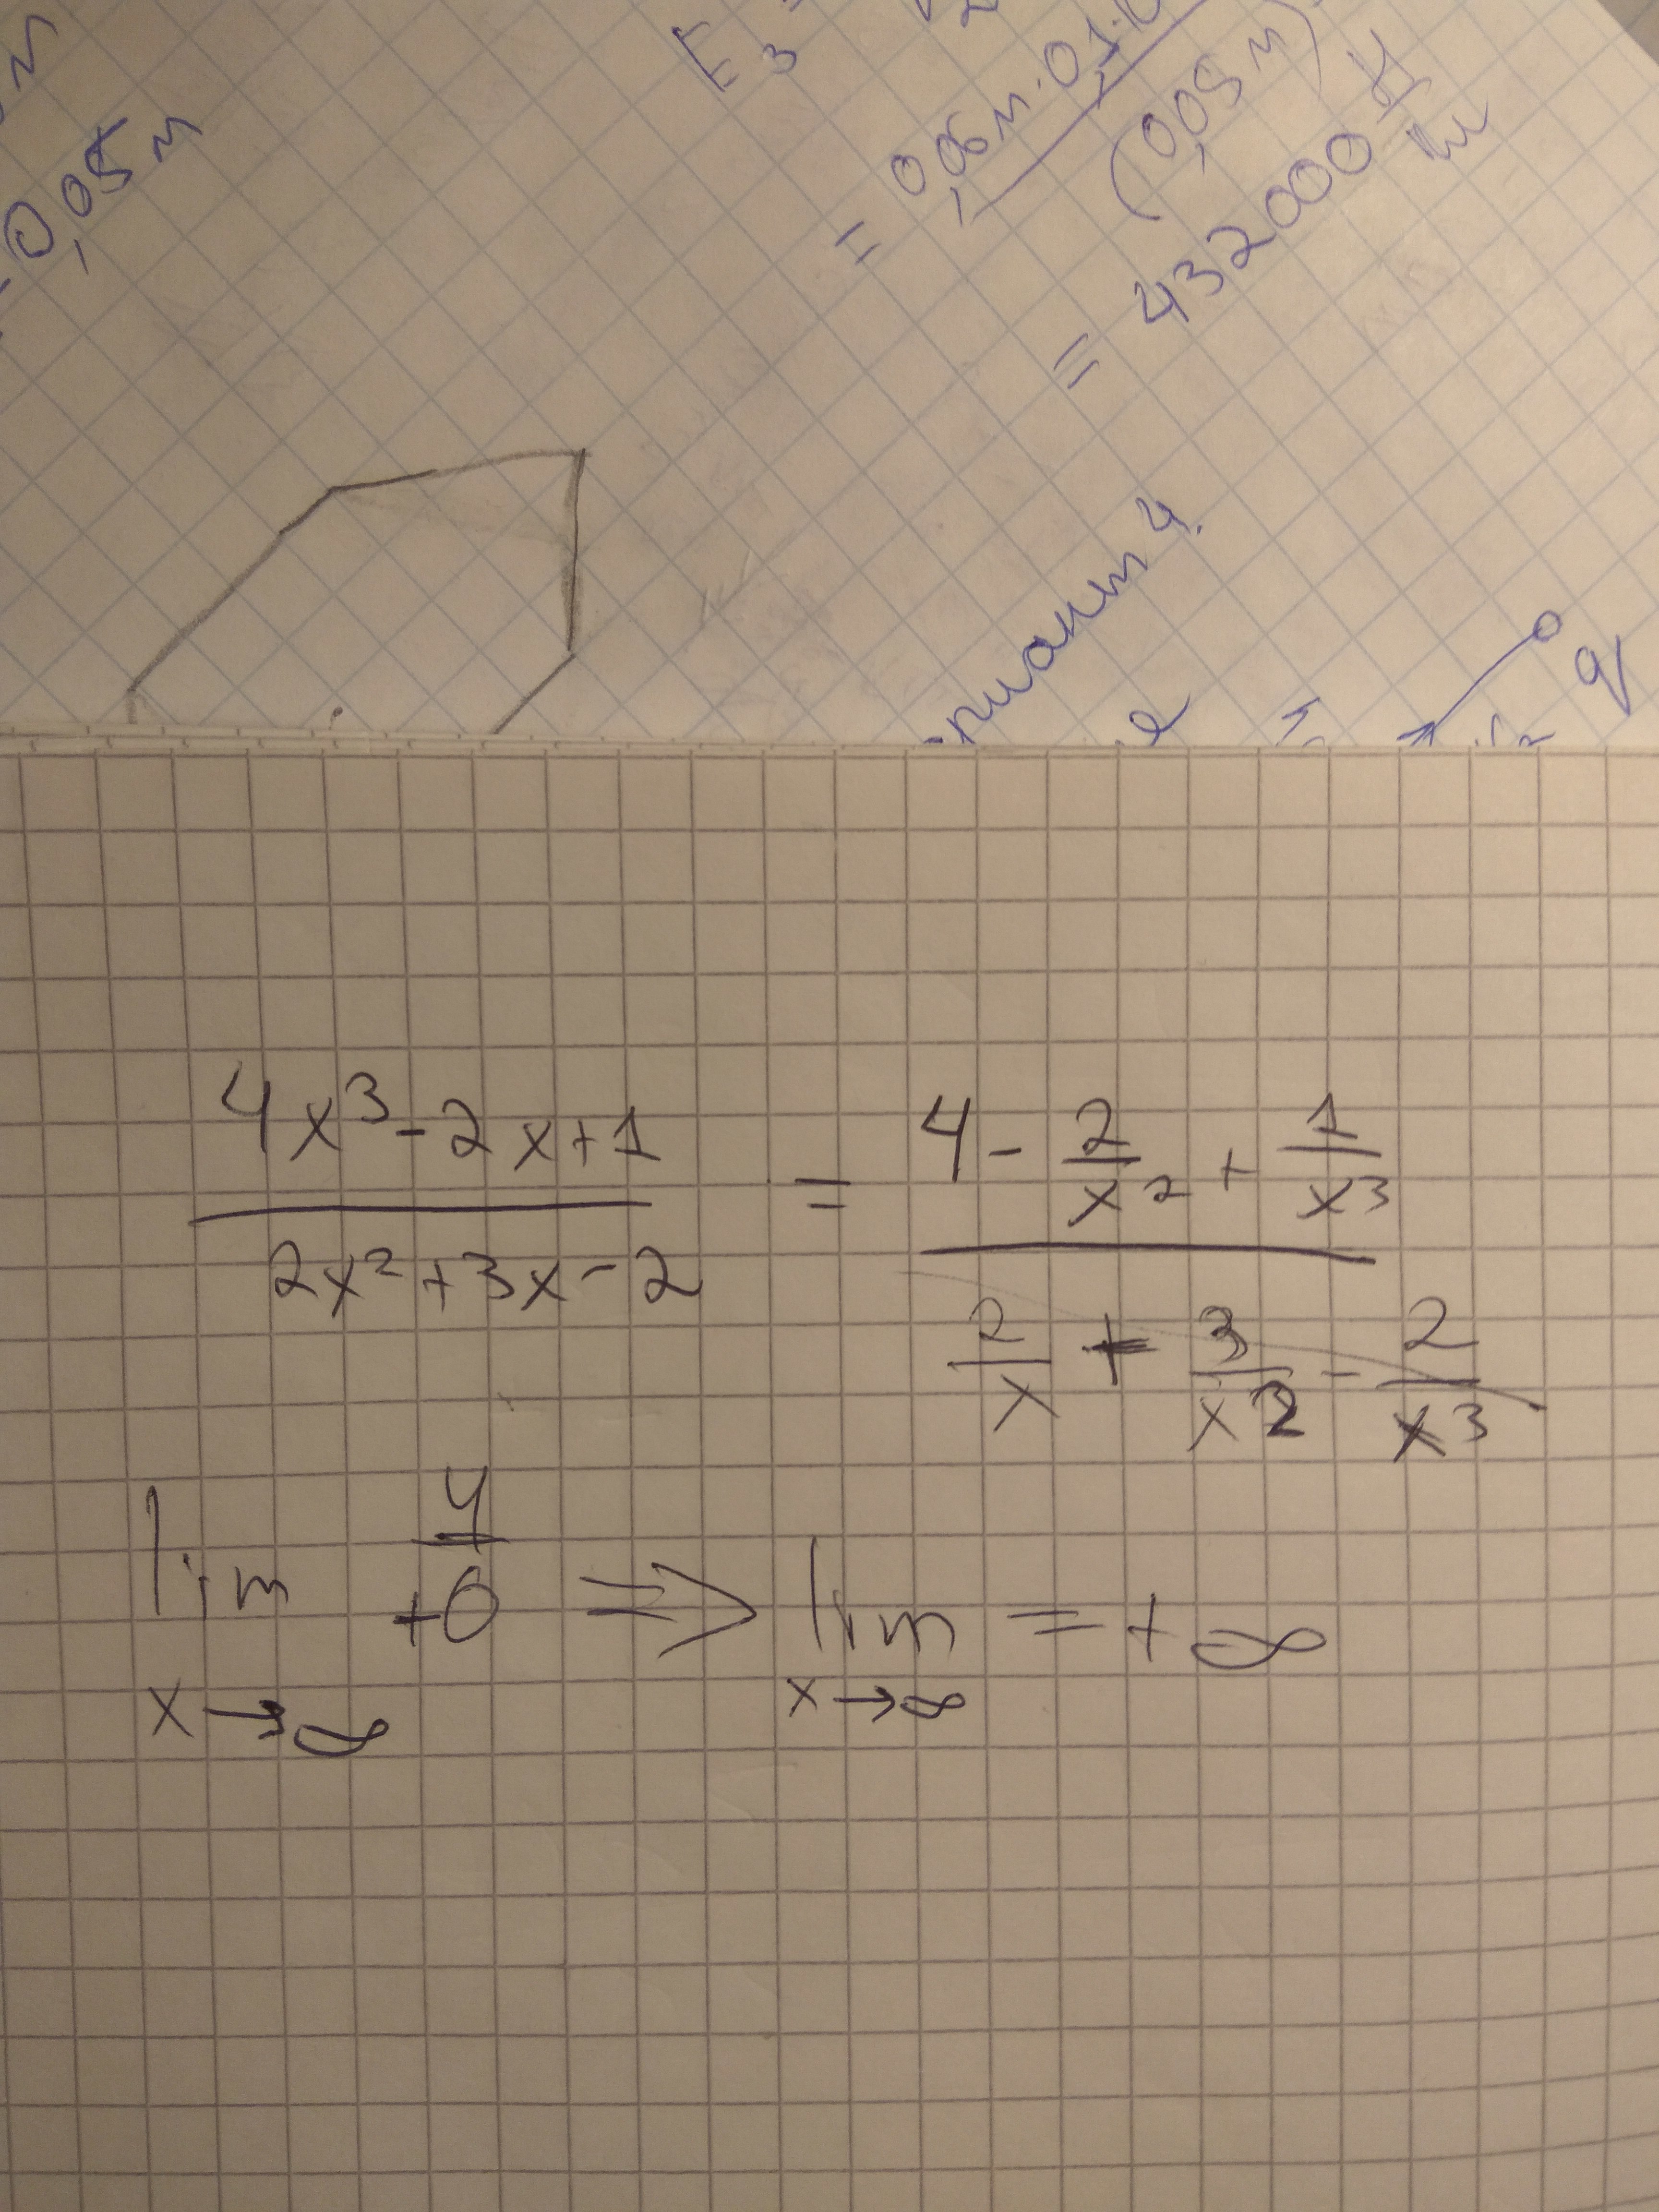 0,05 м
E₃ =
= 0,06 м · 0,1
(0,05 м)
= 432000 Н/Кл
4.
q
(4x³ - 2x + 1)/(2x² + 3x - 2) = (4 - 2/x² + 1/x³)/(2/x + 3/x² - 2/x³)
lim x→∞ 4/+0 => lim x→∞ = +∞